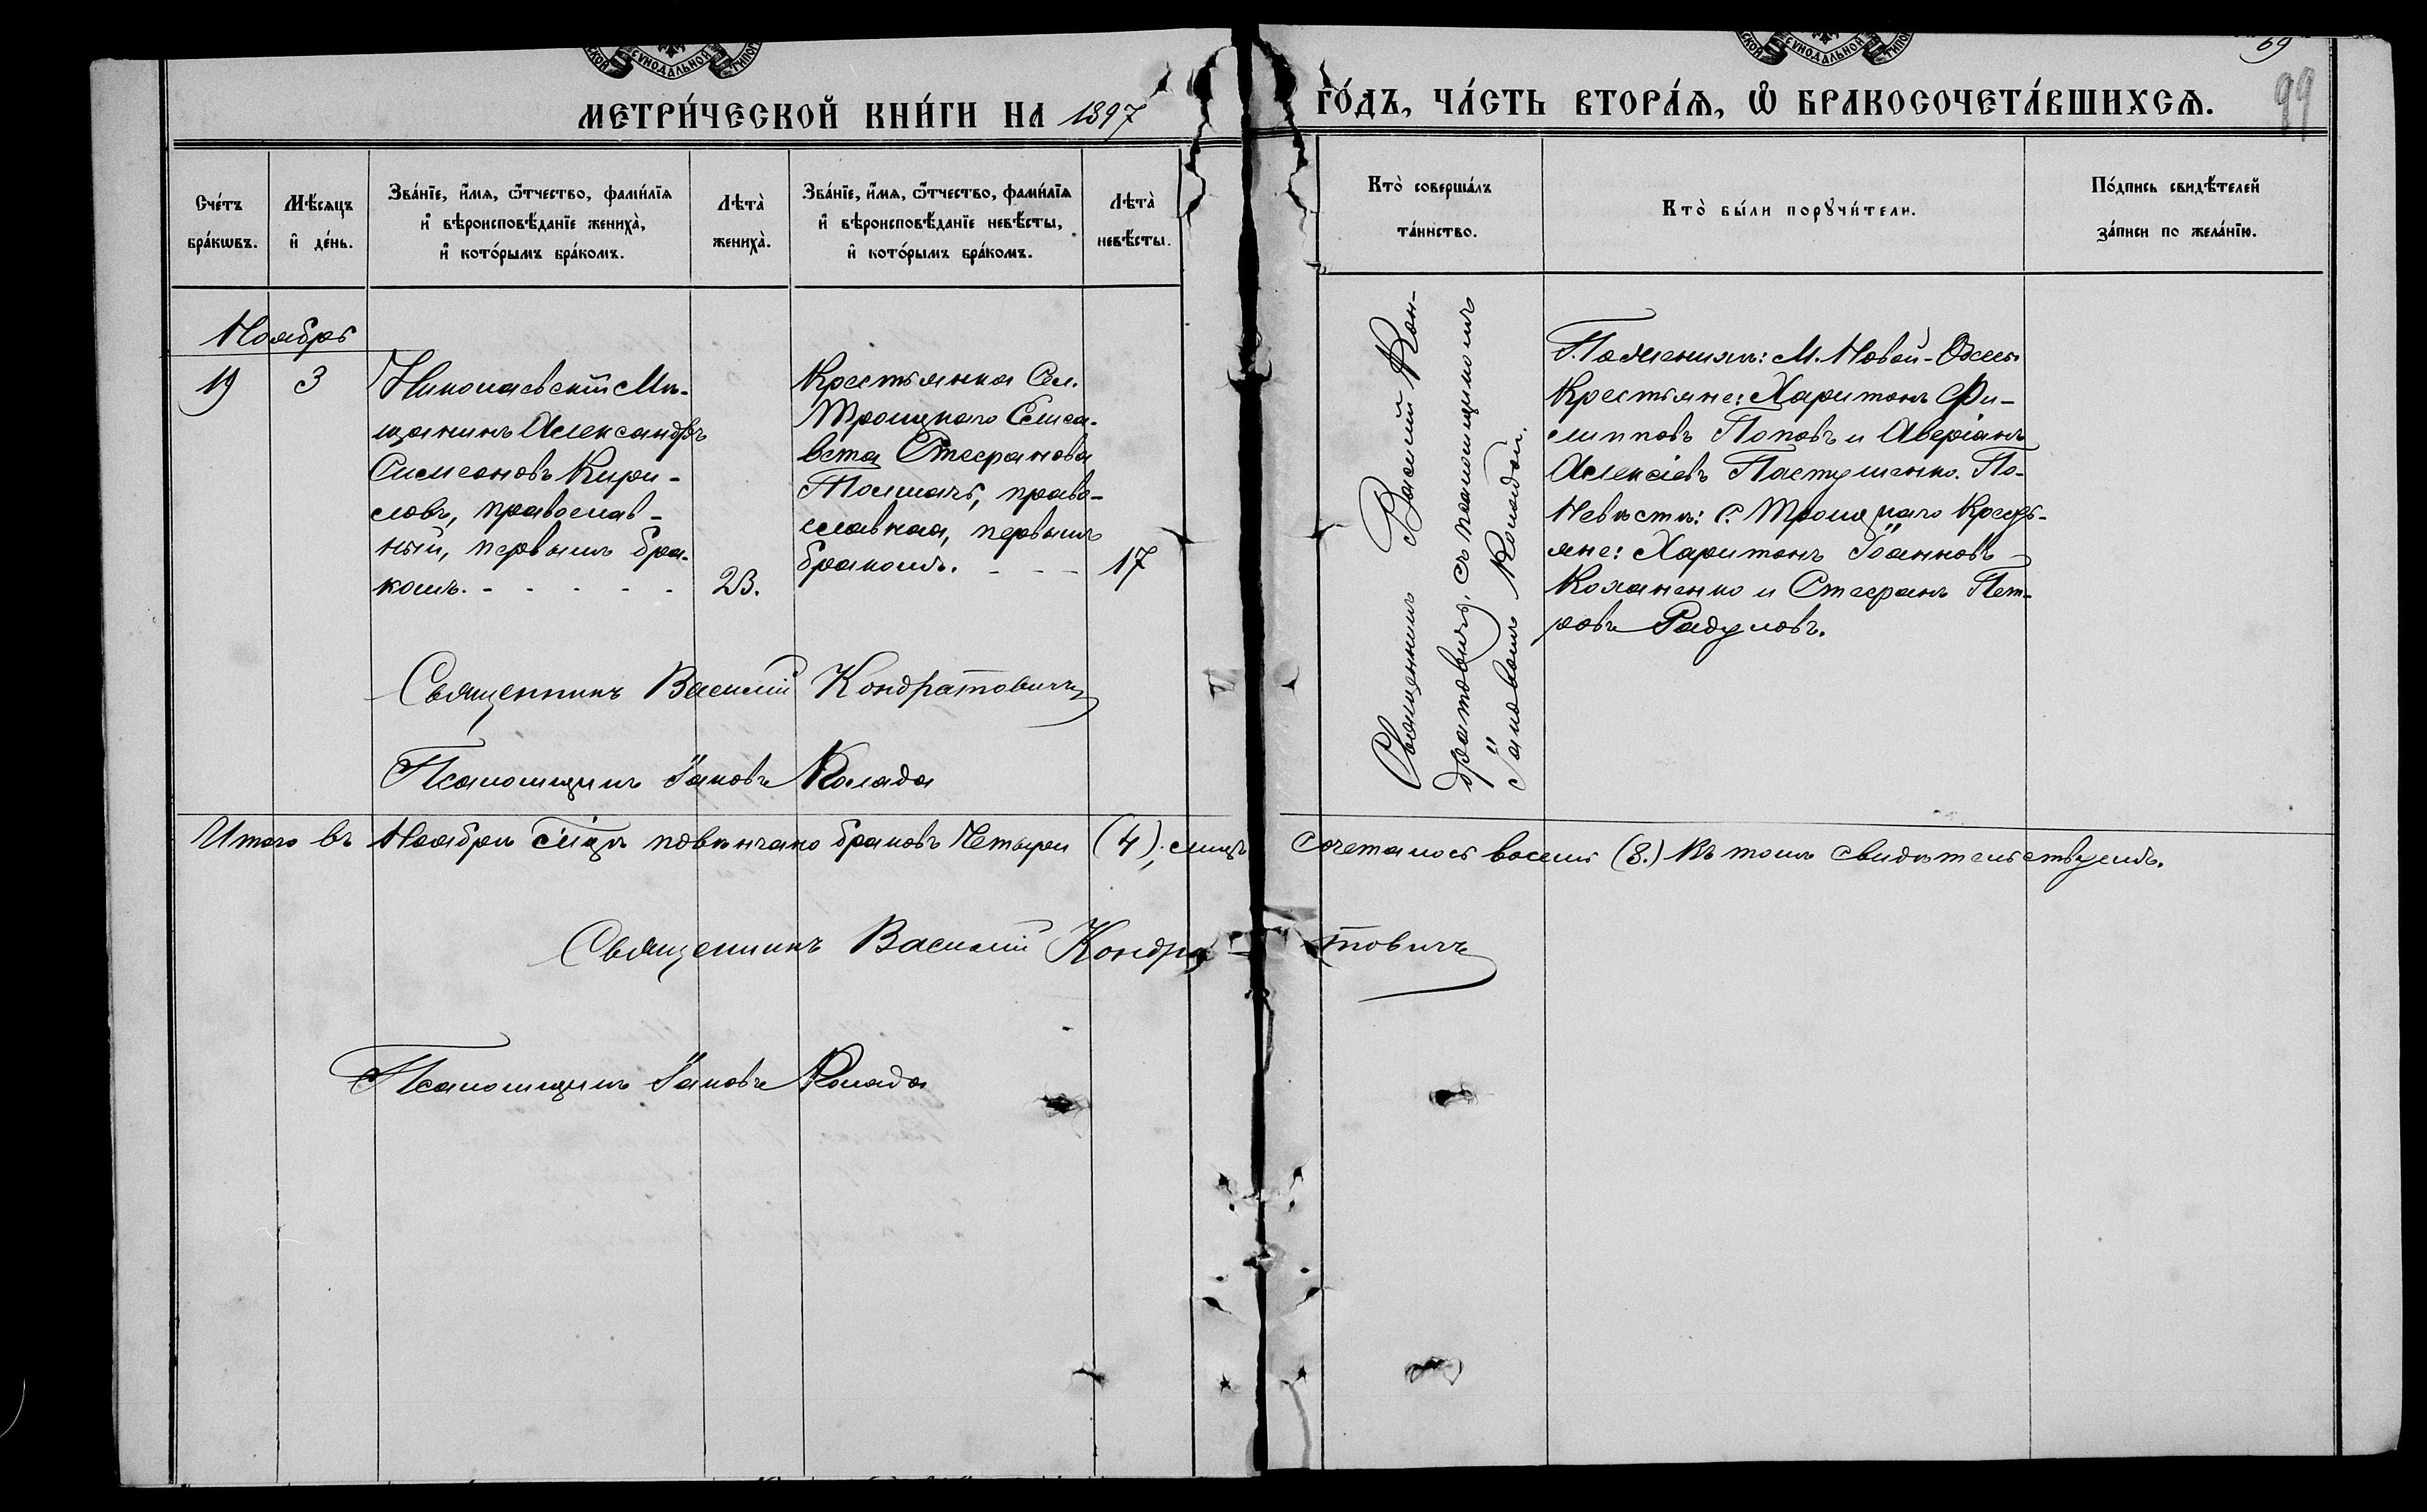 СѴНОДАЛЬНОЙ
СѴНОДАЛЬНОЙ
69
99
МЕТРИ́ЧЕСКОЙ КНИ́ГИ НА 1897
ГО́ДЪ, ЧА́СТЬ ВТОРА́Я, Ѿ БРАКОСОЧЕТА́ВШИХСЯ.
Сче́тъ
бра́кѡвъ.
Мѣ́сяцъ
и҆ де́нь.
Зва́нїе, и҆́мя, ѻ҆́тчество, фами́лїя
и҆ вѣроисповѣ́данїе жениха̀,
и҆ кото́рымъ бра́комъ.
Лѣта̀
жениха̀.
Зва́нїе, и҆́мя, ѻ҆́тчество, фами́лїя
и҆ вѣроисповѣ́данїе невѣ́сты,
и҆ кото́рымъ бра́комъ.
Лѣта̀
невѣ́сты.
Кто̀ соверша́лъ
та́инство.
Кто̀ бы́ли порꙋчи́тели.
По́дпись свидѣ́телей
за́писи по жела́нїю.
Ноябрь
19
3
Николаевскій Мѣ-
щанинъ Александръ
Симеоновъ Кири-
ловъ, православ-
ный, первымъ бра-
комъ. - - - - -
23.
Крестьянка Сел.
Троицкаго Елиса-
вета Стефанова
Толмачъ, право-
славная, первымъ
бракомъ. - - -
17
Священникъ Василій Кон-
дратовичъ, съ псаломщикомъ
Іаковомъ Коладой.
По женихѣ: М. Новой-Одессы
Крестьяне: Харитонъ Фи-
липповъ Поповъ и Аверіанъ
Алексіевъ Пастушенко. По-
Невѣстѣ: С. Троицкаго Кресть-
яне: Харитонъ Іоанновъ
Коханенко и Стефанъ Пет-
ровъ Радуловъ.
Священникъ Василій Кондратовичъ
Псаломщикъ Іаковъ Колада
Итого въ Ноябрѣ мѣсяцѣ повѣнчано браковъ Четыре (4); лицъ сочеталось восемь (8.) Въ томъ свидѣтельствуемъ.
Священникъ Василій Кондра- товичъ
Псаломщикъ Іаковъ Колада